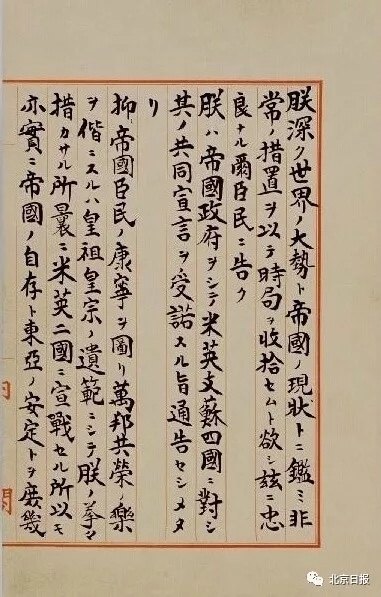 朕深ク世界ノ大勢ト帝國ノ現狀トニ鑑ミ非
常ノ措置ヲ以テ時局ヲ收拾セムト欲シ茲ニ忠
良ナル爾臣民ニ告ク
朕ハ帝國政府ヲシテ米英支蘇四國ニ對シ
其ノ共同宣言ヲ受諾スル旨通告セシメタ
リ
抑〻帝國臣民ノ康寧ヲ圖リ萬邦共榮ノ樂
ヲ偕ニスルハ皇祖皇宗ノ遺範ニシテ朕ノ拳〻
措カサル所曩ニ米英二國ニ宣戰セル所以モ
亦實ニ帝國ノ自存ト東亞ノ安定トヲ庶幾
内
閣
北京日报